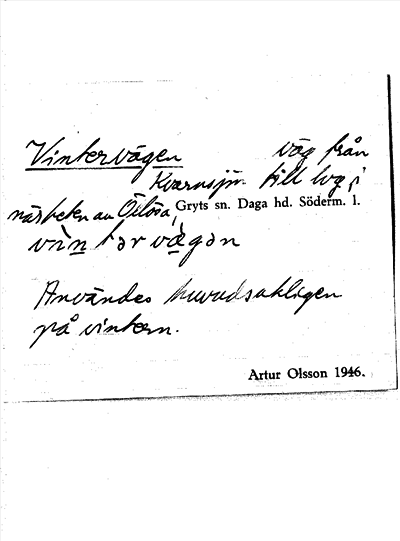 Vintervägen väg från
Kvarnsjön till lvg i
närheten av Ödlösa,
Gryts sn. Daga hd. Söderm. l.
vìn tər vägən
Användes huvudsakligen
på vintern.
Artur Olsson 1946.